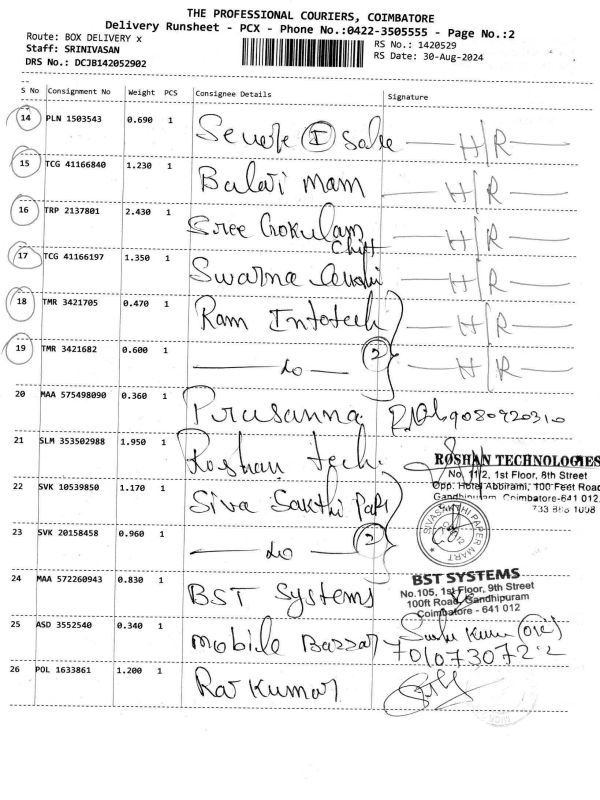 THE PROFESSIONAL COURIERS, COIMBATORE
Delivery Runsheet - PCX - Phone No.:0422-3505555 - Page No.:2
Route: BOX DELIVERY x
Staff: SRINIVASAN
DRS No.: DCJB142052902
RS No.: 1420529
RS Date: 30-Aug-2024
S No Consignment No Weight PCS Consignee Details Signature
14 PLN 1503543 0.690 1 H/R
15 TCG 41166840 1.230 1 Balaji mam H/R
16 TRP 2137801 2.430 1 Sree Gokulam Chit H/R
17 TCG 41166197 1.350 1 Swarna H/R
18 TMR 3421705 0.470 1 Ram Infotech H/R
19 TMR 3421682 0.600 1 do 2 H/R
20 MAA 575498090 0.360 1 Prasanna 9080920310
21 SLM 353502988 1.950 1 Roshan Tech.
ROSHAN TECHNOLOGIES
No. 11/2, 1st Floor, 8th Street
Opp. Hotel Abbirami, 100 Feet Road
Gandhipuram, Coimbatore-641 012.
22 SVK 10539850 1.170 1 Siva Sakthi
23 SVK 20158458 0.960 1 do 2
SIVASAKTHI PAPER MART
24 MAA 572260943 0.830 1 BST Systems
BST SYSTEMS
No.105, 1st Floor, 9th Street
100ft Road, Gandhipuram
Coimbatore - 641 012
25 ASD 3552540 0.340 1 mobile Bazzar
26 POL 1633861 1.200 1 Raj Kumar